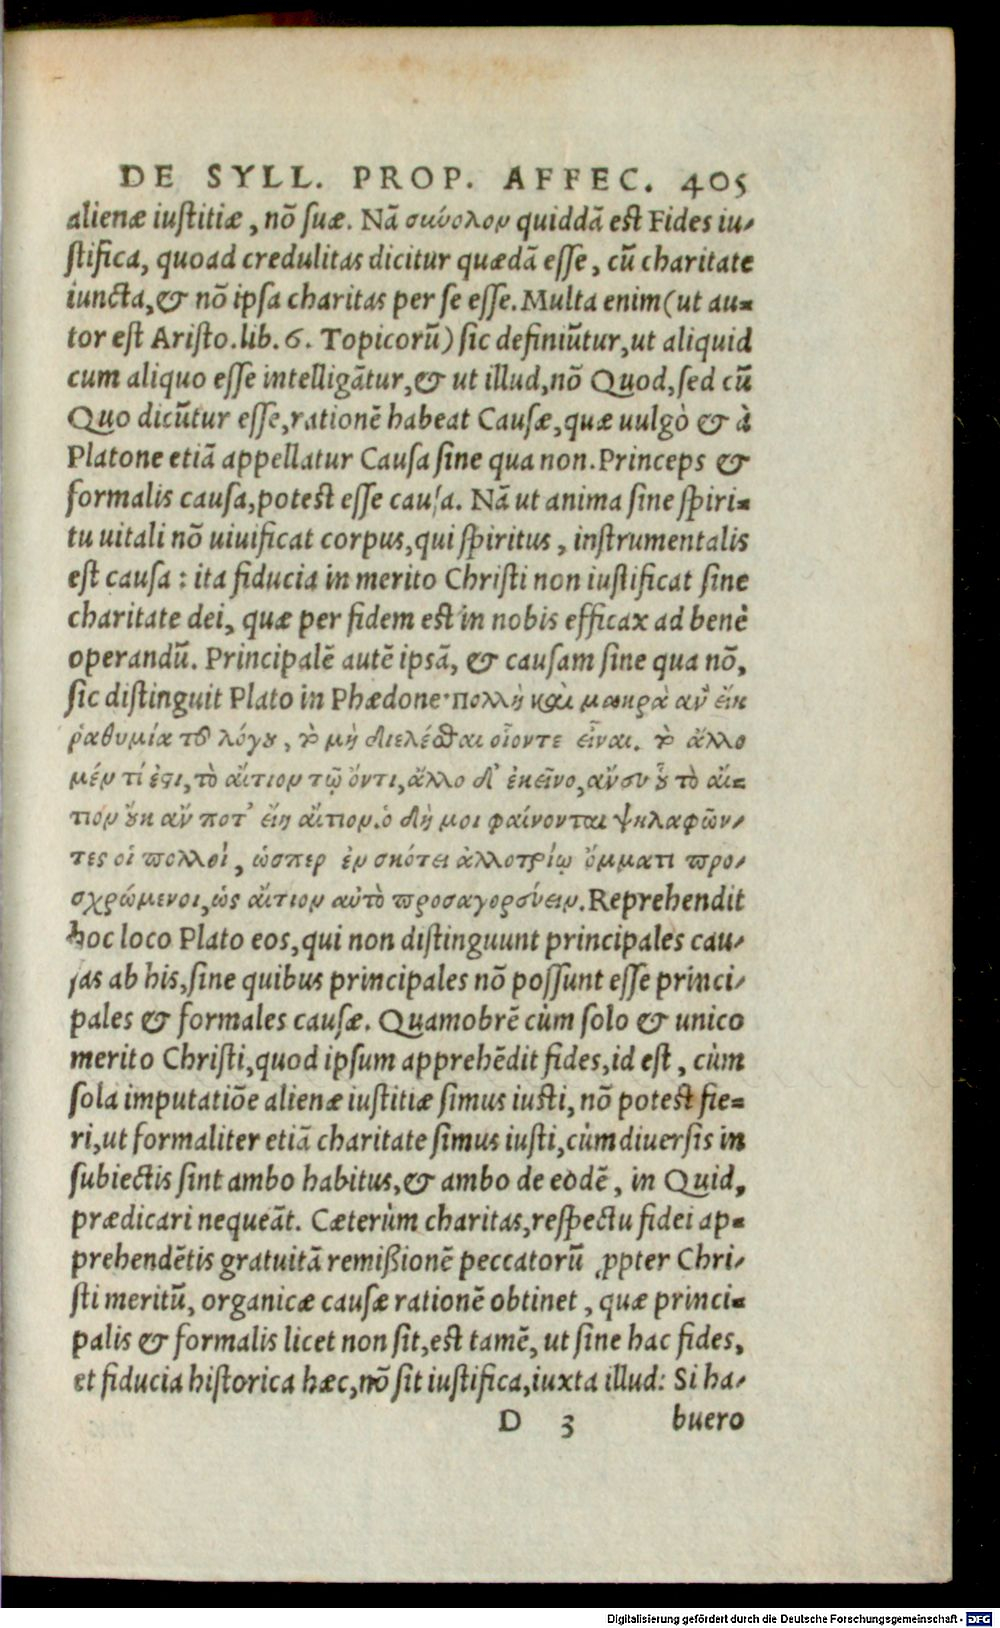 DE SYLL. PROP. AFFEC. 405
alienæ iustitiæ, nõ suæ. Nã σιωόλον quiddã est Fides iu-
stifica, quoad credulitas dicitur quædã esse, cũ charitate
iuncta, & nõ ipsa charitas per se esse. Multa enim (ut au-
tor est Aristo. lib. 6. Topicorũ) sic definiũtur, ut aliquid
cum aliquo esse intelligãtur, & ut illud, nõ Quod, sed cũ
Quo dicũtur esse, rationẽ habeat Causæ, quæ uulgò & à
Platone etiã appellatur Causa sine qua non. Princeps &
formalis causa, potest esse causa. Nã ut anima sine spiri-
tu uitali nõ uiuificat corpus, qui spiritus, instrumentalis
est causa: ita fiducia in merito Christi non iustificat sine
charitate dei, quæ per fidem est in nobis efficax ad benè
operandũ. Principalẽ autẽ ipsã, & causam sine qua nõ,
sic distinguit Plato in Phædone· πολλὴ καὶ μακρὰ ἂν εἴη
ῥαθυμία τοῦ λόγου, τὸ μὴ διελέσθαι οἷοντε εἶναι. τὸ ἄλλο
μέν τί ἐστι, τὸ αἴτιον τῷ ὄντι, ἄλλο δ' ἐκεῖνο, ἄνευ οὗ τὸ αἴ-
τιον οὐκ ἄν ποτ' εἴη αἴτιον. ὃ δή μοι φαίνονται ψηλαφῶν-
τες οἱ πολλοὶ, ὥσπερ ἐν σκότει ἀλλοτρίῳ ὄμματι προ-
σχρώμενοι, ὡς αἴτιον αὐτὸ προσαγορεύειν. Reprehendit
hoc loco Plato eos, qui non distinguunt principales cau-
sas ab his, sine quibus principales nõ possunt esse princi-
pales & formales causæ. Quamobrẽ cùm solo & unico
merito Christi, quod ipsum apprehẽdit fides, id est, cùm
sola imputatiõe alienæ iustitiæ simus iusti, nõ potest fie-
ri, ut formaliter etiã charitate simus iusti, cùm diuersis in
subiectis sint ambo habitus, & ambo de eodẽ, in Quid,
prædicari nequeãt. Cæterùm charitas, respectu fidei ap-
prehendẽtis gratuitã remißionẽ peccatorũ ꝓpter Chri-
sti meritũ, organicæ causæ rationẽ obtinet, quæ princi-
palis & formalis licet non sit, est tamẽ, ut sine hac fides,
et fiducia historica hæc, nõ sit iustifica, iuxta illud: Si ha-
D 3 buero
Digitalisierung gefördert durch die Deutsche Forschungsgemeinschaft - DFG